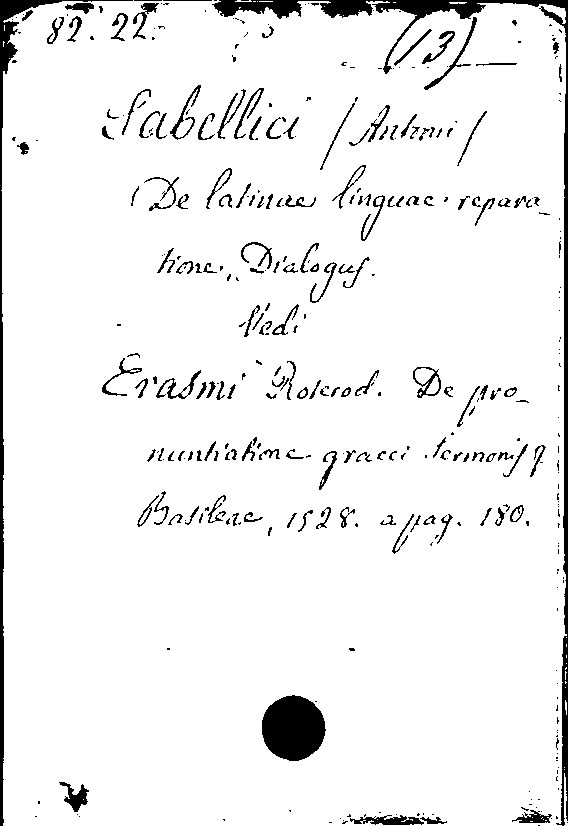 82. 22.
(13)
Sabellici /Antonii/
De latinae linguae repara-
tione, Dialogus.
Vedi
Erasmi Roterod. De pro-
nuntiatione graeci sermonis
Basileae, 1528. a pag. 180.